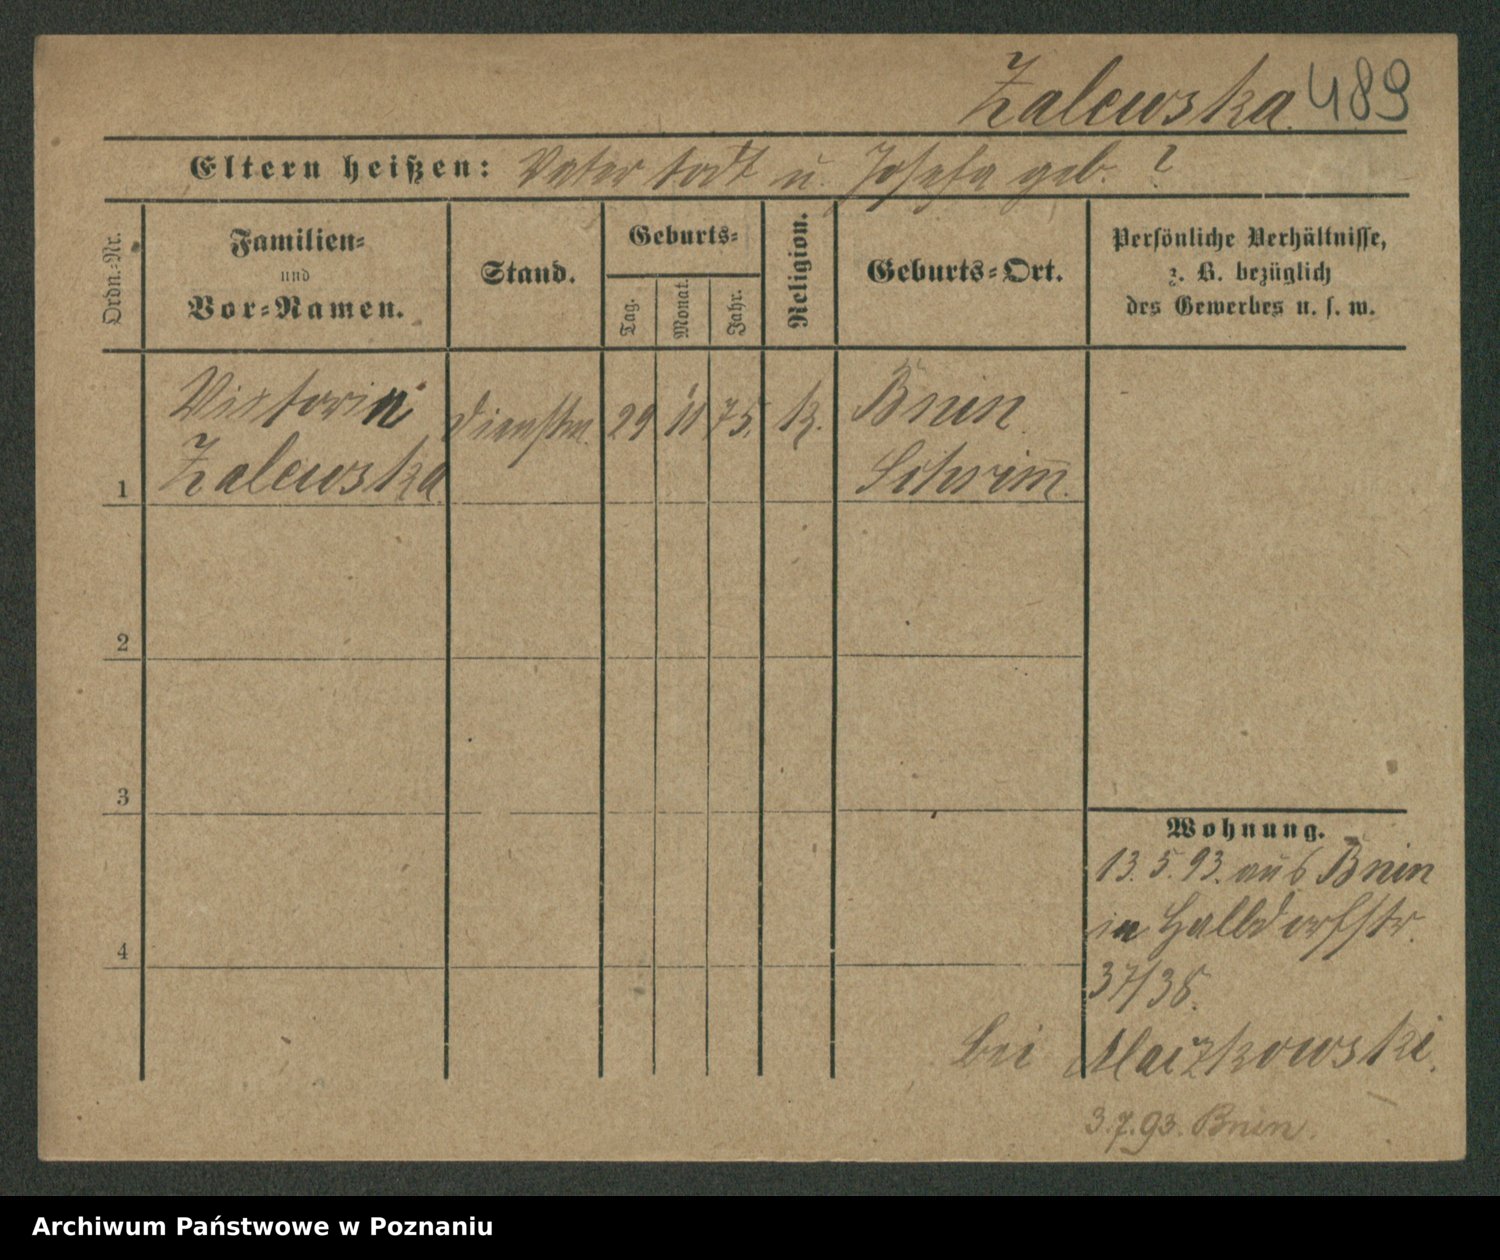 Zalewska. 489
Eltern heißen: Vater todt u. Josefa geb. ?
Ordn.-Nr.
Familien-
und
Vor-Namen.
Stand.
Geburts-
Tag.
Monat.
Jahr.
Religion.
Geburts-Ort.
Persönliche Verhältnisse,
z. B. bezüglich
des Gewerbes u. s. w.
1
Victoria
Zalewska
Dienstm.
29
11
75.
k.
Bnin
Schrimm.
2
3
4
Wohnung.
13.5.93. aus Bnin
in Halbdorfstr.
37/38.
bei Maizkowski.
3.7.93. Bnin.
Archiwum Państwowe w Poznaniu